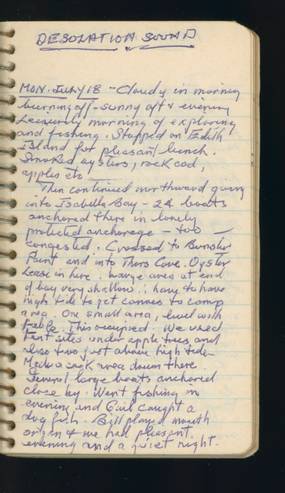 DESOLATION SOUND
MON. JULY 18 - Cloudy in morning
burning off - sunny aft & evening
Leisurely morning of exploring
and fishing. Stopped on Edith
Island for pleasant lunch.
Smoked oysters, rock cod,
apples etc
Then continued northward going
into Isabella Bay - 24 boats
anchored there in lovely
protected anchorage - too
congested. Crossed to
Point and into Thors Cove. Oyster
Lease in here. Large area at end
of bay very shallow ∴ have to have
high tide to get canoes to camp
area. One small area, level with
This occupied. We used
tent sites under apple trees and
also two just above high tide.
area down there
Several large boats anchored
close by. Went fishing in
evening and caught a
dog fish. Bill played mouth
organ & we had pleasant
evening and a quiet night.